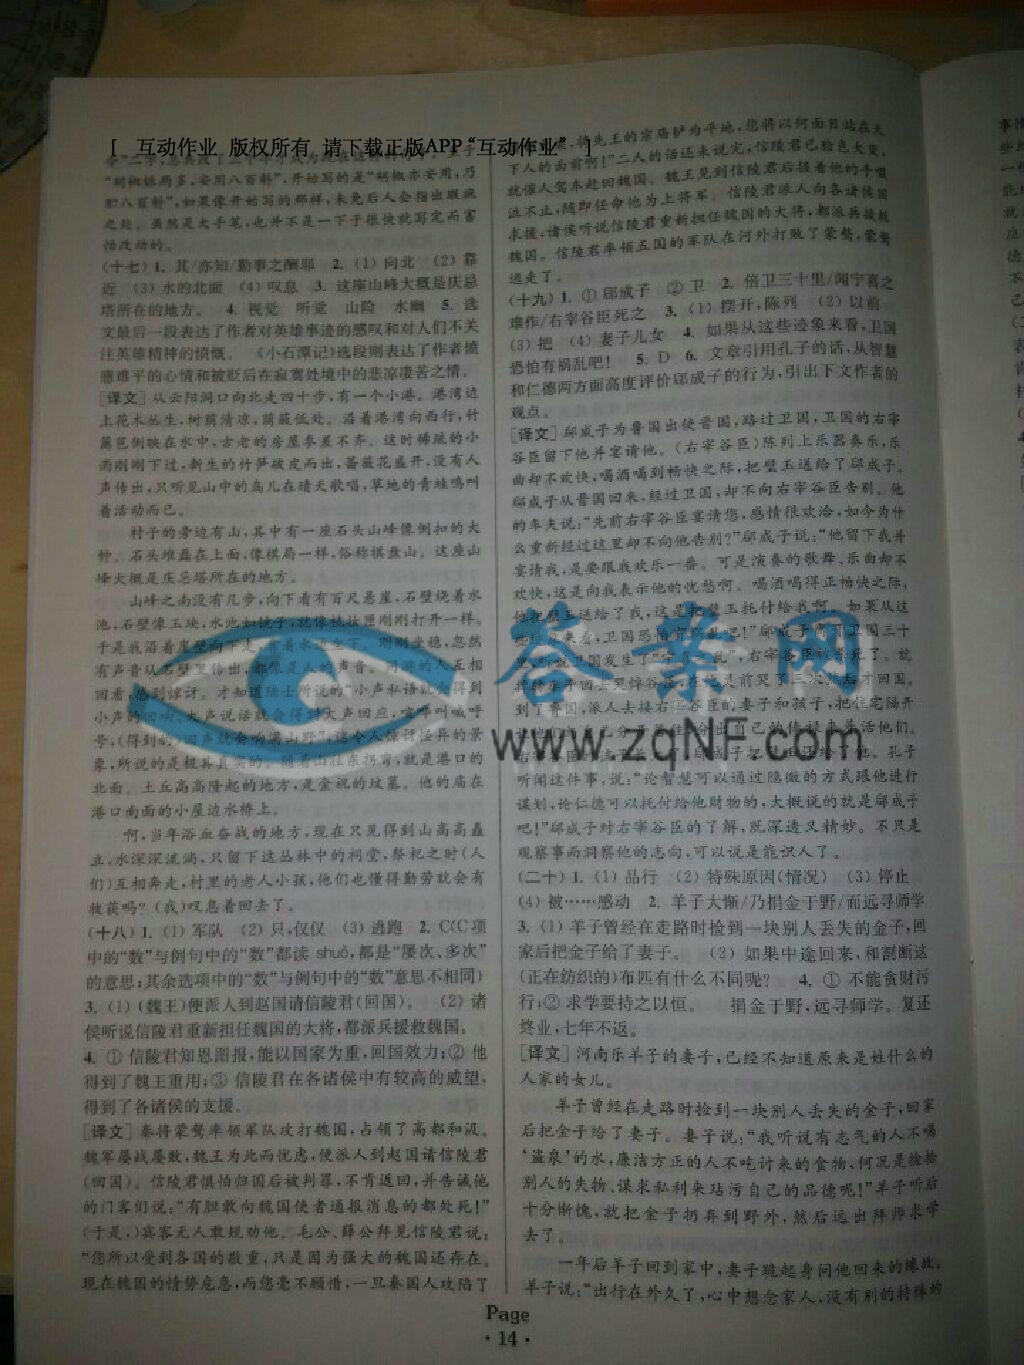 [ 互动作业 版权所有 请下载正版APP“互动作业” ]
“胡椒铢两多，安用八百斛”，开始写的是“胡椒亦安用，乃
贮八百斛”，如果像开始写的那样，未免后人会指出瑕疵
之处。虽然是大手笔，也并不是一下子很快就写定而害
怕改动的。
(十七) 1. 其/亦知/勤事之酬耶 2. (1) 向北 (2) 靠
近 (3) 水的北面 (4) 叹息 3. 这座山峰大概是庆忌
塔所在的地方。 4. 视觉 听觉 山险 水幽 5. 选
文最后一段表达了作者对英雄事迹的感叹和对人们不关
注英雄精神的愤慨。 《小石潭记》选段则表达了作者愤
懑难平的心情和被贬后在寂寞处境中的悲凉凄苦之情。
[译文] 从云阳洞口向北走四十步，有一个小港。港湾边
上花木丛生，树荫清凉，荫蔽低处。沿着港湾向西行，竹
篱笆倒映在水中，古老的房屋参差不齐。这时稀疏的小
雨刚刚下过，新生的竹笋破皮而出，蔷薇花盛开，没有人
声传出，只听见山中的鸟儿在晴天歌唱，草地的青蛙鸣叫
着活动而已。
村子的旁边有山，其中有一座石头山峰像倒扣的大
钟。石头堆磊在上面，像棋局一样，俗称棋盘山。这座山
峰大概是庆忌塔所在的地方。
山峰之南没有几步，向下看有百尺悬崖，石壁绕着水
池，石壁像玉玦，水池如镜子，就像梳妆匣刚刚打开一样。
于是我沿着崖壁向下走，靠着水边坐下。刚刚坐稳，忽然
有声音从石壁里传出，都像是人的声音。同游的人互相
回看，感到惊讶。才知道陆士所说的“小声私语就会得到
小声的回响、大声说话就会得到大声回应，喧哗叫喊呼
号，(得到的)回声就会响满山野”，这令人惊讶怪异的景
象，所说的是极其真实的。随着山往东拐弯，就是港口的
北面。土丘高高隆起的地方，是金祝的坟墓。他的庙在
港口南面的小屋边水桥上。
啊，当年浴血奋战的地方，现在只见得到山高高矗
立，水深深流淌，只留下这丛林中的祠堂，祭祀之时(人
们)互相奔走，村里的老人小孩，他们也懂得勤劳就会有
收获吗？(我)叹息着回去了。
(十八) 1. (1) 军队 (2) 只，仅仅 (3) 逃跑 2. C(C项
中的“数”与例句中的“数”都读 shuò，都是“屡次、多次”
的意思；其余选项中的“数”与例句中的“数”意思不相同)
3. (1) (魏王)便派人到赵国请信陵君(回国)。 (2) 诸
侯听说信陵君重新担任魏国的大将，都派兵援救魏国。
4. ① 信陵君知恩图报，能以国家为重，回国效力；② 他
得到了魏王重用；③ 信陵君在各诸侯中有较高的威望，
得到了各诸侯的支援。
[译文] 秦将蒙骜率领军队攻打魏国，占领了高都和汲。
魏军屡战屡败，魏王为此而忧虑，便派人到赵国请信陵君
(回国)。信陵君惧怕归国后被判罪，不肯返回，并告诫他
的门客们说：“有胆敢向魏国使者通报消息的都处死！”
(于是，)宾客无人敢规劝他。毛公、薛公拜见信陵君说：
“您所以受到各国的敬重，只是因为强大的魏国还存在。
现在魏国的情势危急，而您毫不顾惜，一旦秦国人攻陷了
将先王的宗庙铲为平地，您将以何面目站在天
下人的面前啊！”二人的话还未说完，信陵君已脸色大变，
就催人驾车赶回魏国。魏王见到信陵君后握着他的手啜
泣不止，随即任命他为上将军。信陵君派人向各诸侯国
求援，诸侯听说信陵君重新担任魏国的大将，都派兵援救
魏国。信陵君率领五国的军队在河外打败了蒙骜，蒙骜
逃走了。
(十九) 1. ① 郈成子 ② 卫 2. 倍卫三十里/闻宁喜之
难作/右宰谷臣死之 3. (1) 摆开，陈列 (2) 以前
(3) 把 (4) 妻子儿女 4. 如果从这些迹象来看，卫国
恐怕有祸乱吧！ 5. D 6. 文章引用孔子的话，从智慧
和仁德两方面高度评价郈成子的行为，引出下文作者的
观点。
[译文] 郈成子为鲁国出使晋国，路过卫国，卫国的右宰
谷臣留下他并宴请他。(右宰谷臣)陈列上乐器奏乐，乐
曲却不欢快，喝酒喝到畅快之际，把璧玉送给了郈成子。
郈成子从晋国回来，经过卫国，却不向右宰谷臣告别。他
的车夫说：“先前右宰谷臣宴请您，感情很欢洽，如今为什
么重新经过这里却不向他告别？”郈成子说：“他留下我并
宴请我，是要跟我欢乐一番。可是演奏的歌舞、乐曲却不
欢快，这是向我表示他的忧愁啊。喝酒喝得正畅快之际，
他把璧玉送给了我，这是把璧玉托付给我啊。如果从这
来看，卫国恐怕有祸乱吧！”郈成子离开卫国三十
里，听说卫国发生了右宰谷臣被杀死了。就
到了鲁国，派人去接右宰谷臣的妻子和孩子，把住宅隔开
听闻这件事，说：“论智慧可以通过隐微的方式跟他进行
谋划，论仁德可以托付给他财物的，大概说的就是郈成子
吧！”郈成子对右宰谷臣的了解，既深透又精妙。不只是
观察事而洞察他的志向，可以说是能识人了。
(二十) 1. (1) 品行 (2) 特殊原因(情况) (3) 停止
(4) 被……感动 2. 羊子大惭/乃捐金于野/而远寻师学
3. (1) 羊子曾经在走路时捡到一块别人丢失的金子，回
家后把金子给了妻子。 (2) 如果中途回来，和割断这
(正在纺织的)布匹有什么不同呢？ 4. ① 不能贪财污
行；② 求学要持之以恒。 捐金于野，远寻师学。复还
终业，七年不返。
[译文] 河南乐羊子的妻子，已经不知道原来是姓什么的
人家的女儿。
羊子曾经在走路时捡到一块别人丢失的金子，回家
后把金子给了妻子。妻子说：“我听说有志气的人不喝
‘盗泉’的水，廉洁方正的人不吃讨来的食物，何况是捡拾
别人的失物、谋求私利来玷污自己的品德呢！”羊子听后
十分惭愧，就把金子扔弃到野外，然后远出拜师求学
去了。
一年后羊子回到家中，妻子跪起身问他回来的缘故。
羊子说：“出行在外久了，心中想念家人，没有别的特殊的
答案网
www.zqNF.com
Page
· 14 ·